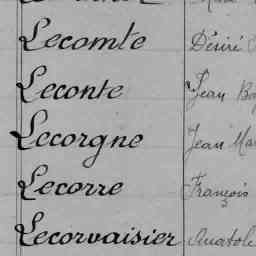 Lecomte Désiré
Leconte Jean
Lecorgne Jean
Lecorre François
Lecorvaisier Anatole